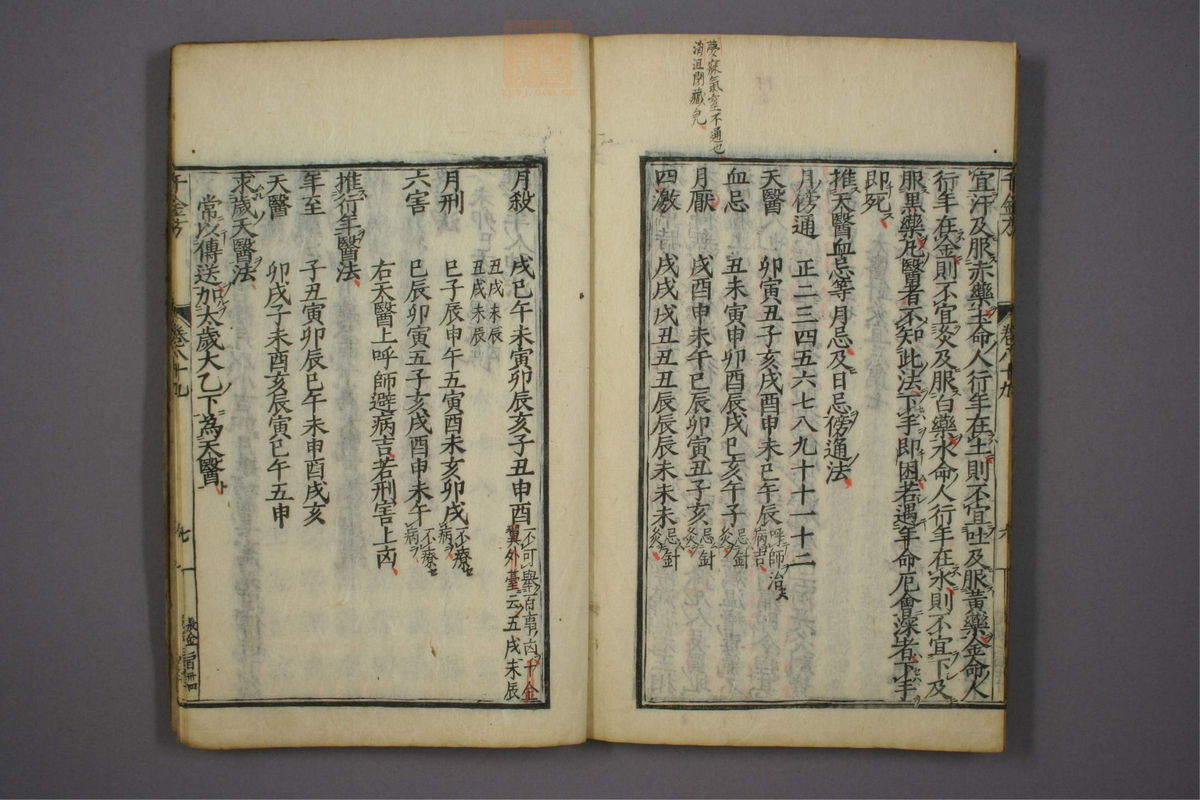 夢寐氣塞不通也
宜汗及服赤藥土命人行年在土則不宜吐及服黃藥金命人
行年在金則不宜灸及服白藥水命人行年在水則不宜下及
服黑藥凡醫者不知此法下手即困若遇年命厄會深者下手
即死
推天醫血忌等月忌及日忌傍通法
月傍通 正二三四五六七八九十十一十二
天醫 卯寅丑子亥戌酉申未巳午辰 呼師治病吉
血忌 丑未寅申卯酉辰戌巳亥午子 忌針灸
月厭 戌酉申未午巳辰卯寅丑子亥 忌針灸
四激 戌戌戌丑丑丑辰辰辰未未未 忌針灸
千金方 卷八十九 六
月殺 戌巳午未寅卯辰亥子丑申酉 不可舉百事凶千金翼外臺云五戌未辰
丑戌未辰丑戌未辰
月刑 巳子辰申午五寅酉未亥卯戌 不療病
六害 巳辰卯寅五子亥戌酉申未午 不療病
右天醫上呼師避病吉若刑害上凶
推行年醫法
年至 子丑寅卯辰巳午未申酉戌亥
天醫 卯戌子未酉亥辰寅巳午五申
求歲天醫法
常以傳送加太歲大乙下為天醫
千金方 卷八十九 七